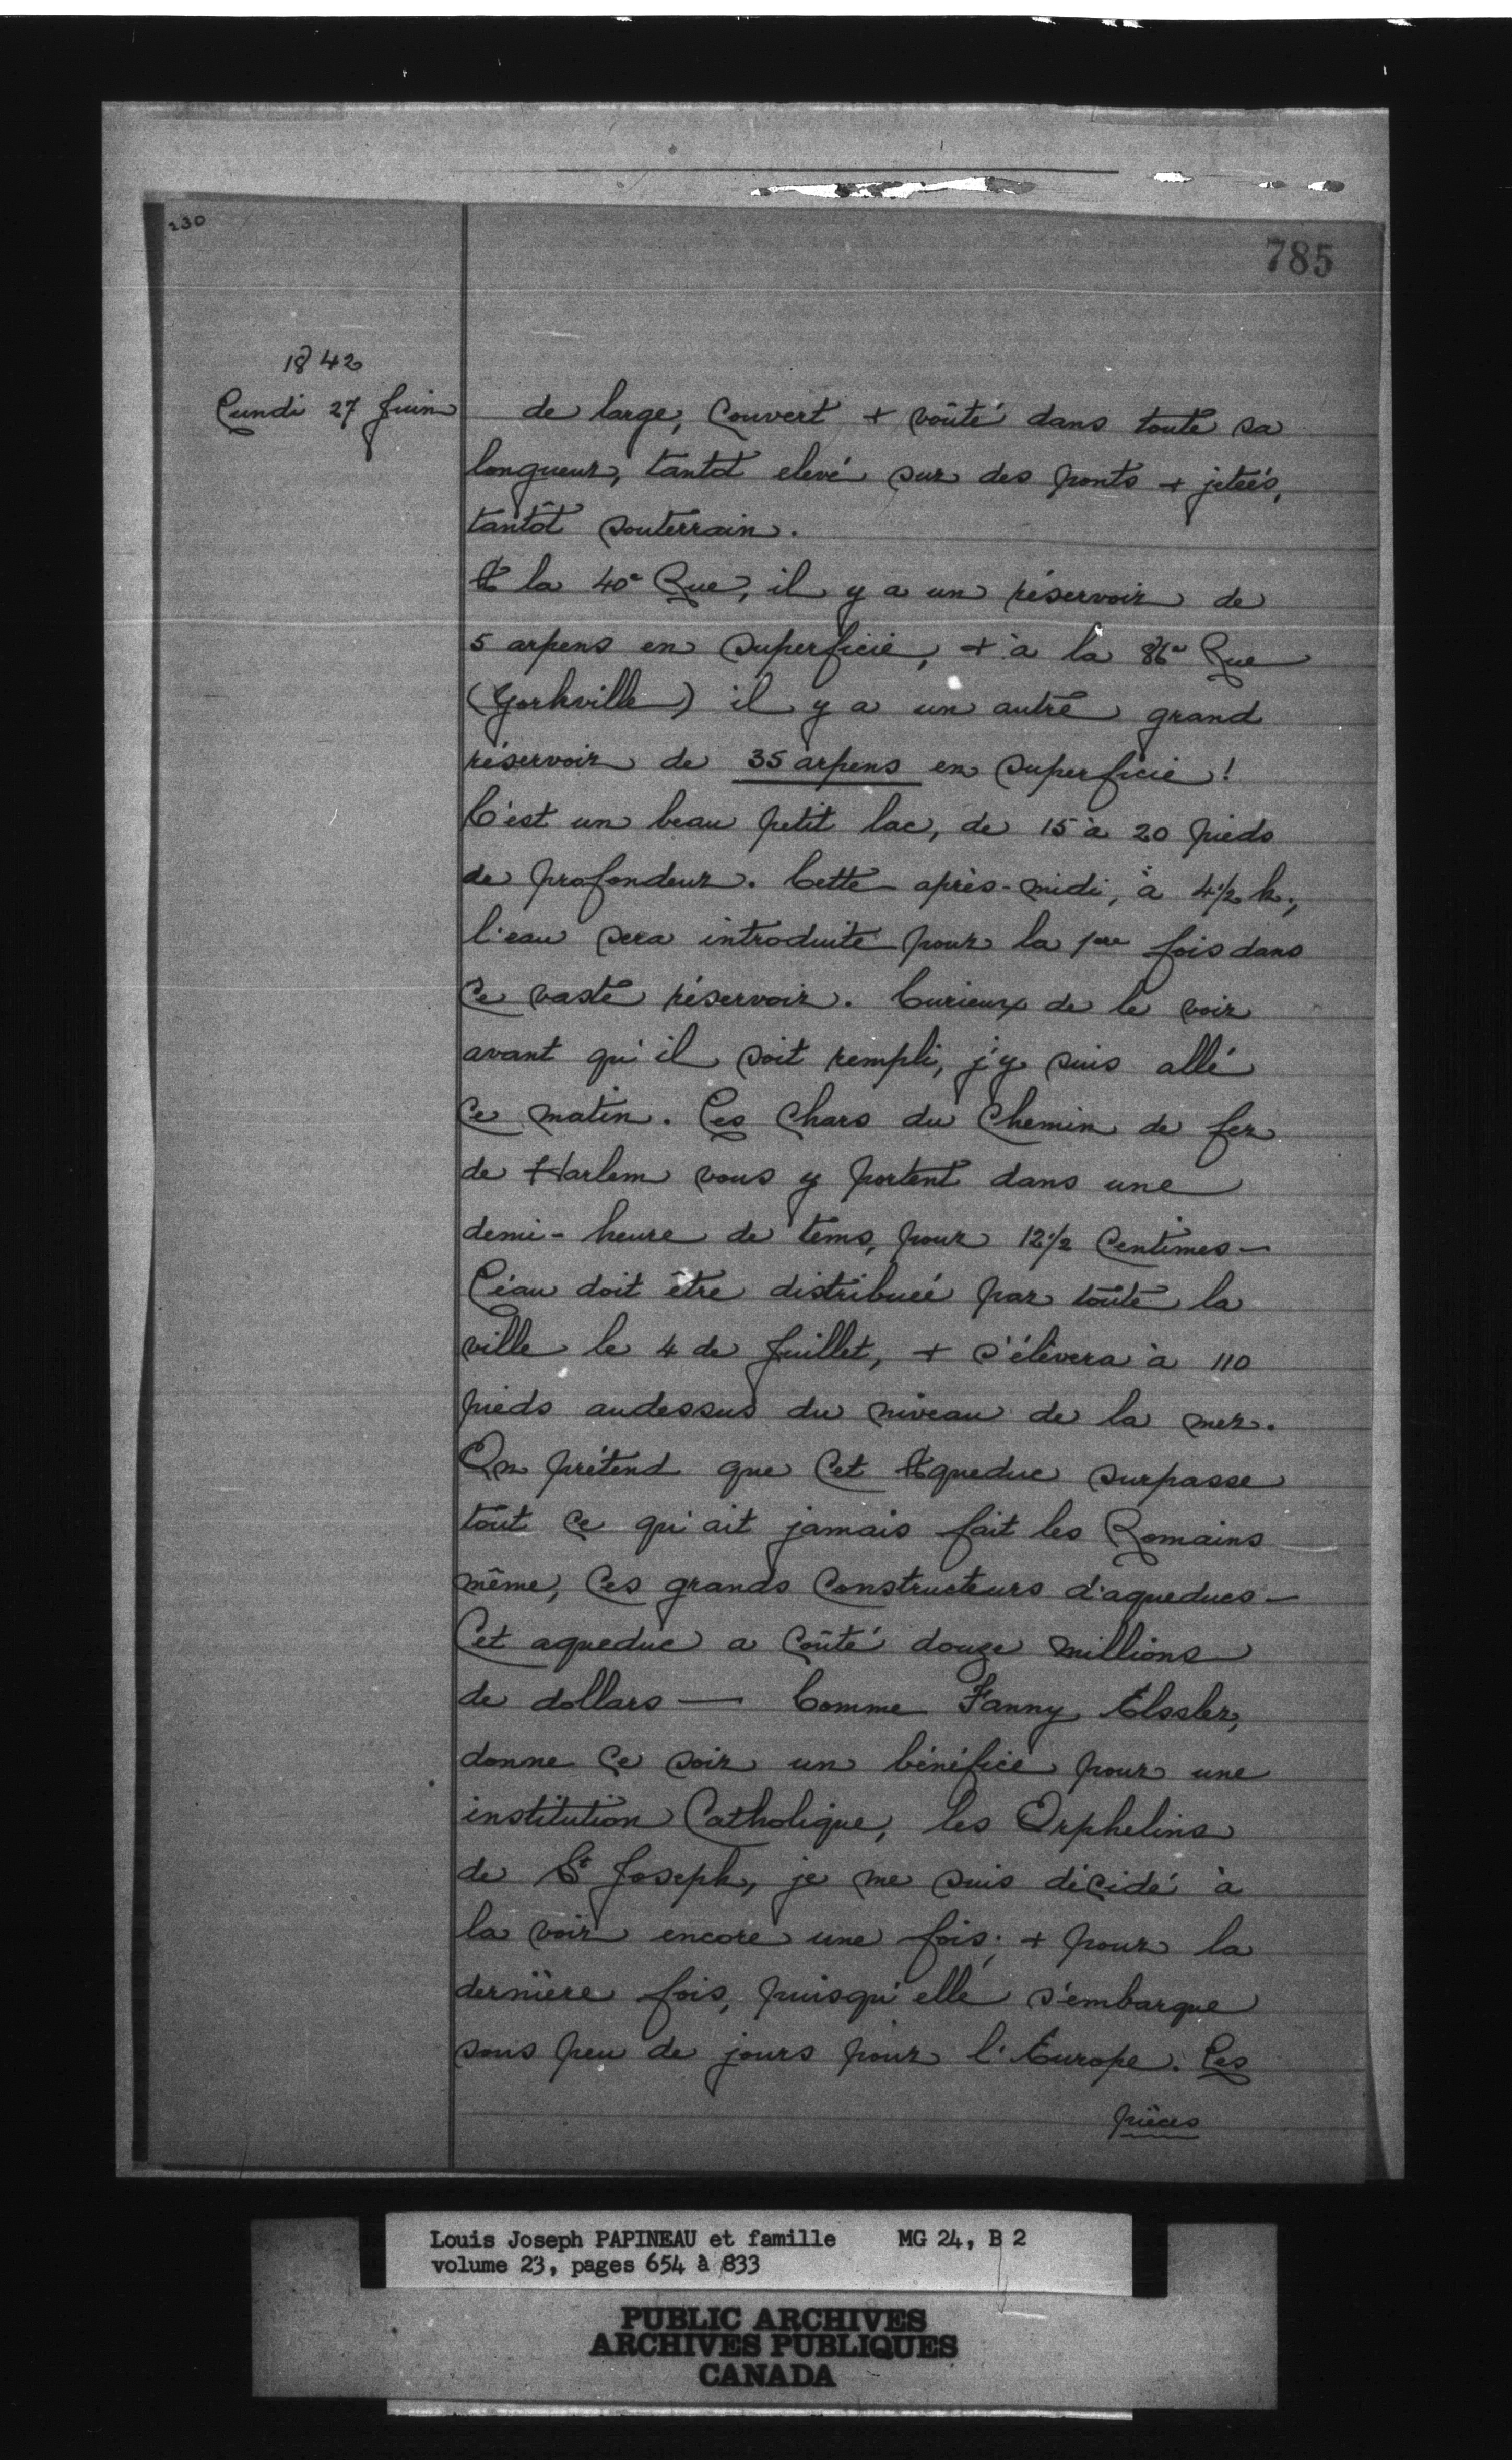 230
785
1842
Lundi 27 Juin
de large, couvert + voûté dans toute sa
longueur, tantot elevé sur des ponts + jeteés,
tantôt souterrain.
A la 40e Rue, il y a un réservoir de
5 arpens en superficie, + à la 86e Rue
(Yorkville) il y a un autre grand
réservoir de 35 arpens en superficie!
C'est un beau petit lac, de 15 à 20 pieds
de profondeur. Cette après-midi, à 4 1/2 h.,
l'eau sera introduite pour la 1ere fois dans
ce vaste réservoir. Curieux de le voir
avant qu'il soit rempli, j'y suis allé
ce matin. Les chars du Chemin de fer
de Harlem vous y portent dans une
demi-heure de tems, pour 12 1/2 centimes —
L'eau doit être distribueé par toute la
ville le 4 de Juillet, + s'élèvera à 110
pieds audessus du niveau de la mer.
On prétend que cet Aqueduc surpasse
tout ce qu'ait jamais fait les Romains
même, ces grands constructeurs d'aqueducs —
Cet aqueduc a coûté douze millions
de dollars — Comme Fanny Elssler,
donne ce soir un bénéfice pour une
institution Catholique, les Orphelins
de St Joseph, je me suis décidé à
la voir encore une fois; + pour la
dernière fois, puisqu'elle s'embarque
sous peu de jours pour l'Europe. Les
pièces
Louis Joseph PAPINEAU et famille MG 24, B 2
volume 23, pages 654 à 833
PUBLIC ARCHIVES
ARCHIVES PUBLIQUES
CANADA